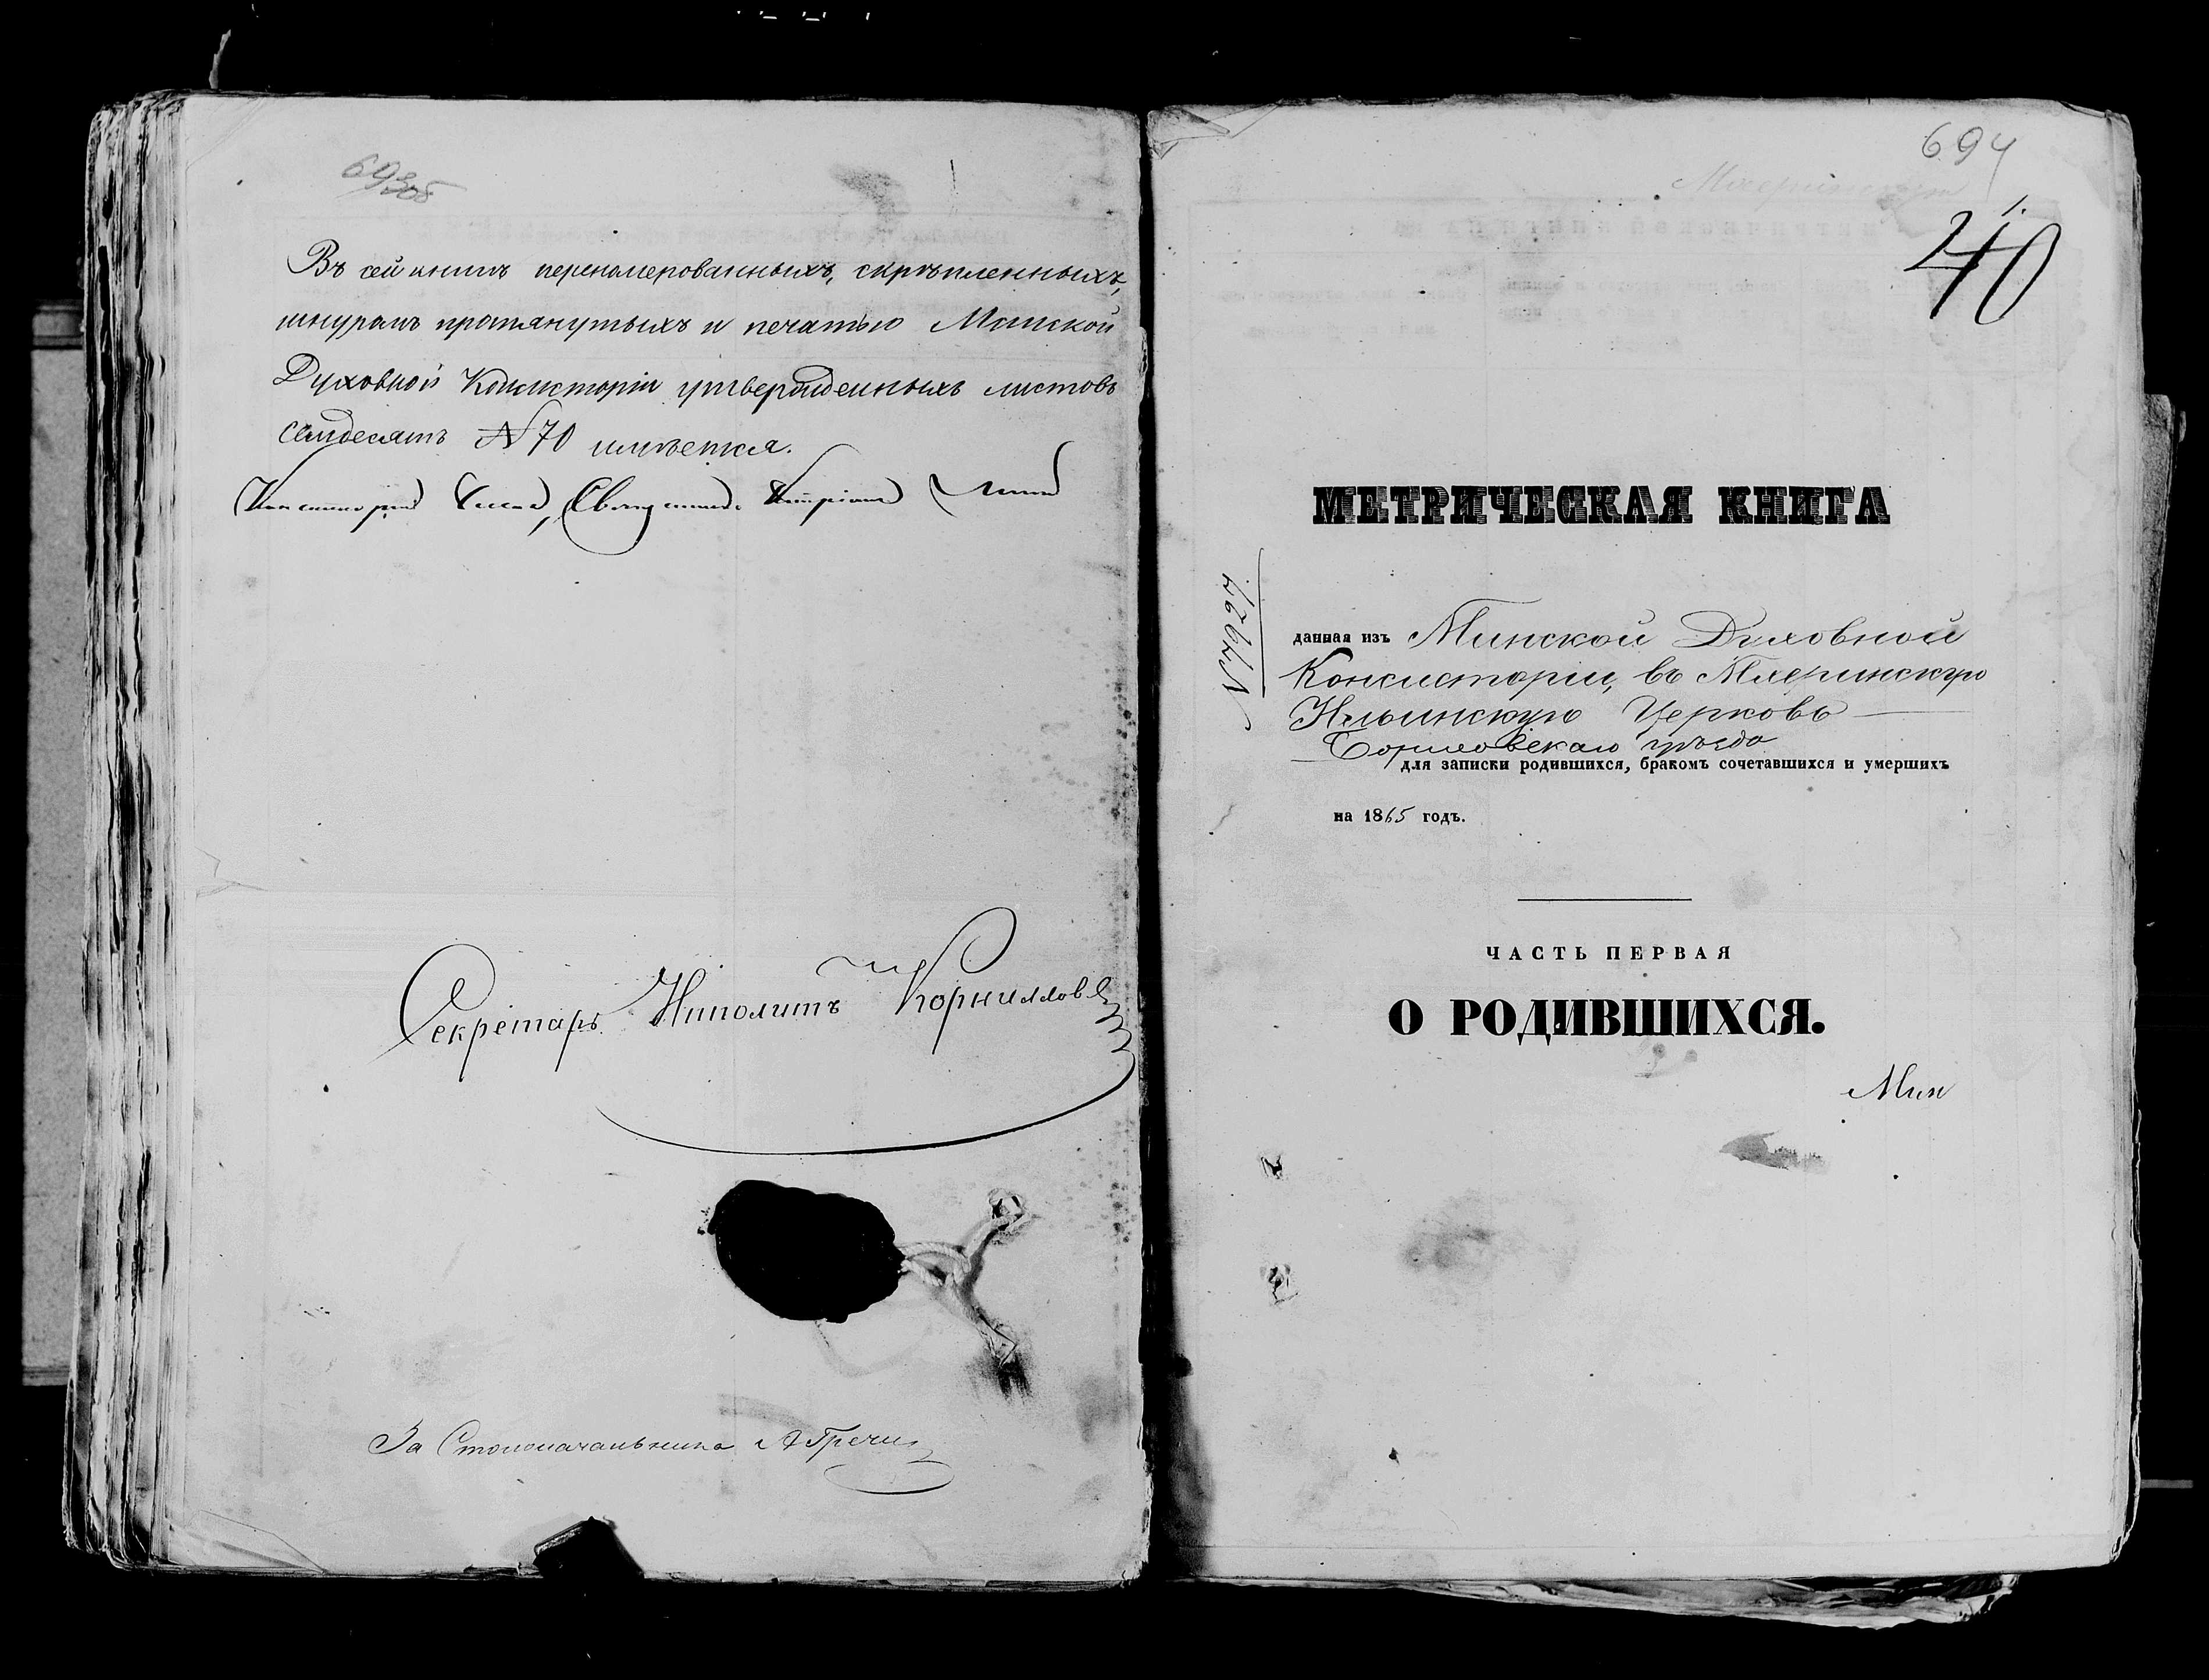 693об
Въ сей книгѣ перенумерованныхъ, скрѣпленныхъ,
шнуромъ протянутыхъ и печатью Минской
Духовной Консисторіи утвержденныхъ листовъ
семдесятъ № 70 имѣется.
Членъ,
Секретарь Ипполитъ Корниллов
За Столоначальника А Гречи
694
1.
40
МЕТРИЧЕСКАЯ КНИГА
№ 7927.
данная изъ Минской Духовной
Консисторіи, въ Мхеринскую
Ильинскую Церковь
Борисовскаго уѣзда
для записки родившихся, бракомъ сочетавшихся и умершихъ
на 1865 годъ.
ЧАСТЬ ПЕРВАЯ
О РОДИВШИХСЯ.
Мин